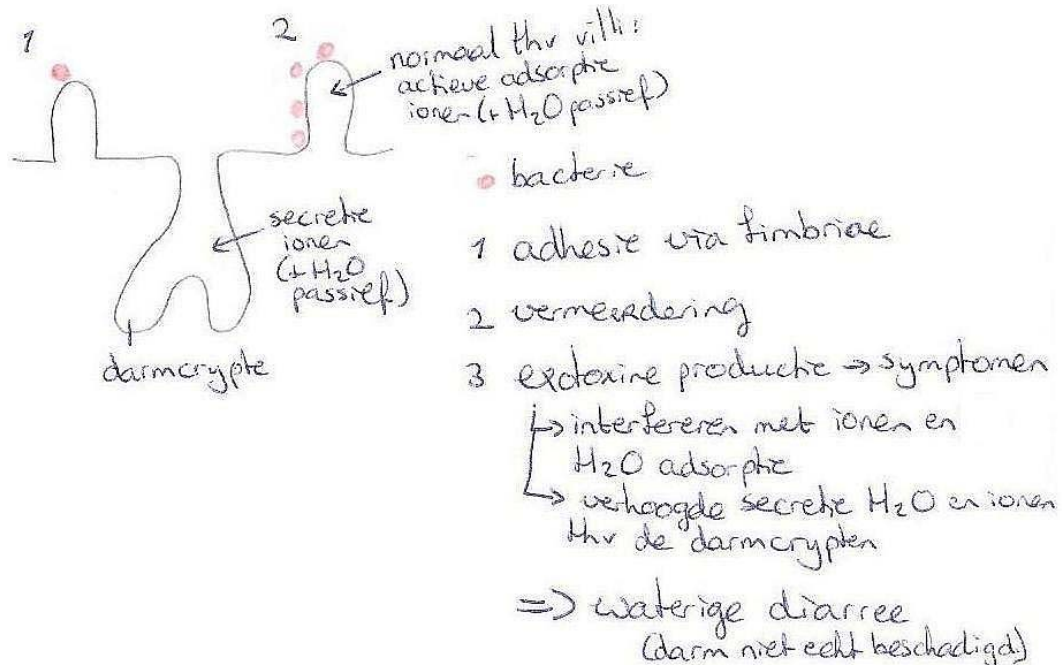 1
2
normaal thv villi:
actieve adsorptie
ionen (+ H₂O passief)
secretie
ionen
(+ H₂O
passief)
darmcrypte
bacterie
1 adhesie via fimbriae
2 vermeerdering
3 exotoxine productie → symptomen
↳ interfereren met ionen en
H₂O adsorptie
↳ verhoogde secretie H₂O en ionen
thv de darmcrypten
=> waterige diarree
(darm niet echt beschadigd)